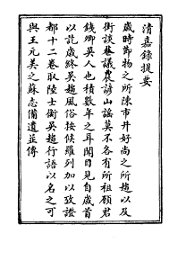 清嘉錄提要
歲時節物之所陳市井好尚之所趨以及
街談巷議農諺山謡莫不各有所祖顧君
錢卿吳人也積數年之耳聞目見自歲首
以訖歲終吳趨風俗按候羅列加以攷證
都十二卷取陸士衡吳趨行語以名之可
與王元美之蘇志備遺並傳